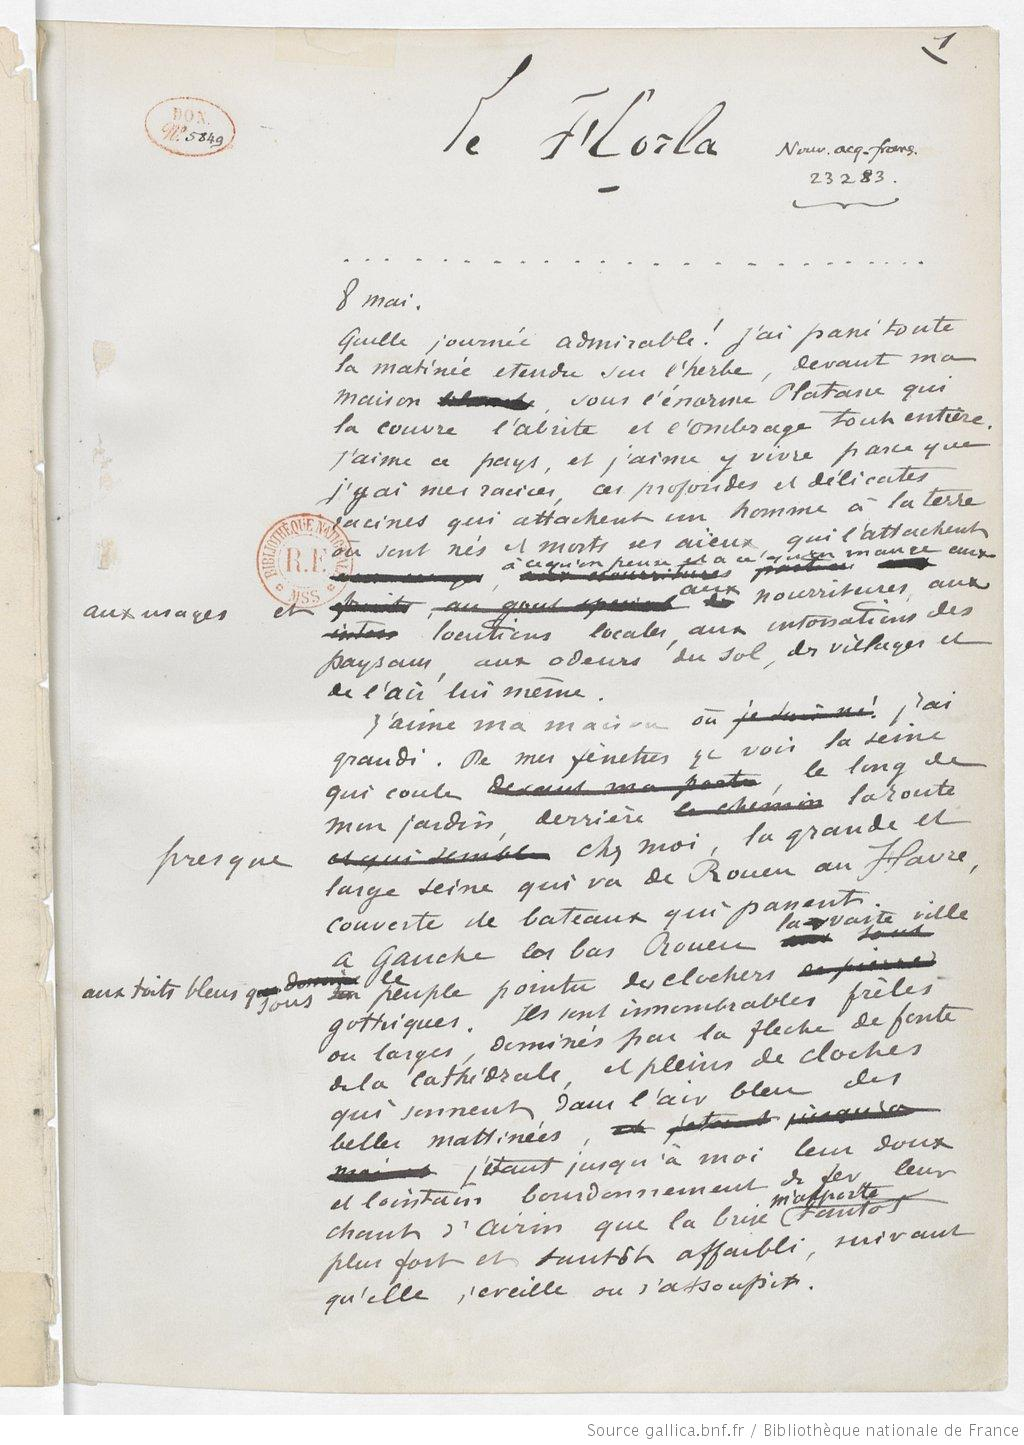 1
DON.
Nº 5849
le Horla
Nouv. acq. franç.
23283.
8 mai.
Quelle journée admirable! J'ai passé toute
la matinée etendu sur l'herbe, devant ma
maison, sous l'énorme Platane qui
la couvre l'abrite et l'ombrage tout entière.
J'aime ce pays, et j'aime y vivre parce que
j'y ai mes racines, ces profondes et délicates
racines qui attachent un homme à la terre
où sont nés et morts ses aïeux, qui l'attachent
BIBLIOTHÈQUE NATIONALE R.F. MSS
à ce qu'on pense et à ce qu'on mange aux
aux usages et fruits, au gout special aux nourritures, aux
locutions locales, aux intonations des
paysans, aux odeurs du sol, des villages et
de l'air lui même.
J'aime ma maison où je suis né. j'ai
grandi. De mes fenêtres je vois la seine
qui coule devant ma porte, le long de
mon jardin, derrière le chemin la route
presque et qui semble chez moi, la grande et
large seine qui va de Rouen au Havre,
couverte de bateaux qui passent.
a Gauche là bas Rouen la vaste ville
aux toits bleus sous le peuple pointu des clochers
gothiques. Ils sont innombrables frêles
ou larges, dominés par la fleche de fonte
de la cathédrale, et pleins de cloches
qui sonnent dans l'air bleu des
belles mattinées, et jetant jusqu'à
jetant jusqu'à moi leur doux
et lointain bourdonnement de fer leur
chant d'airin que la brise m'apporte tantôt
plus fort et tantôt affaibli, suivant
qu'elle s'eveille ou s'assoupit.
Source gallica.bnf.fr / Bibliothèque nationale de France